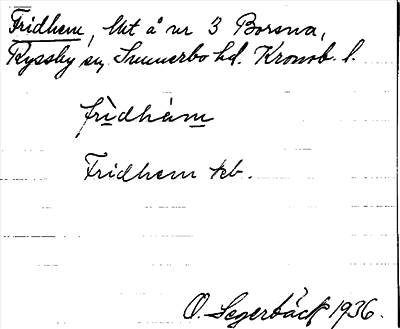 Fridhem, lht å nr 3 Borsna,
Ryssby sn, Sunnerbo hd. Kronob. l.
frìdhàm
Fridhem kb.
O. Segerbäck 1936.